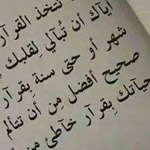 تتخذ القرآر
أيآك أن تُبآلي لِقلبك
شهر أو حتى سنة بِقرآر
صحيح أفضل مِن أن تتألم
حيآتك بِقرآر خآطئ